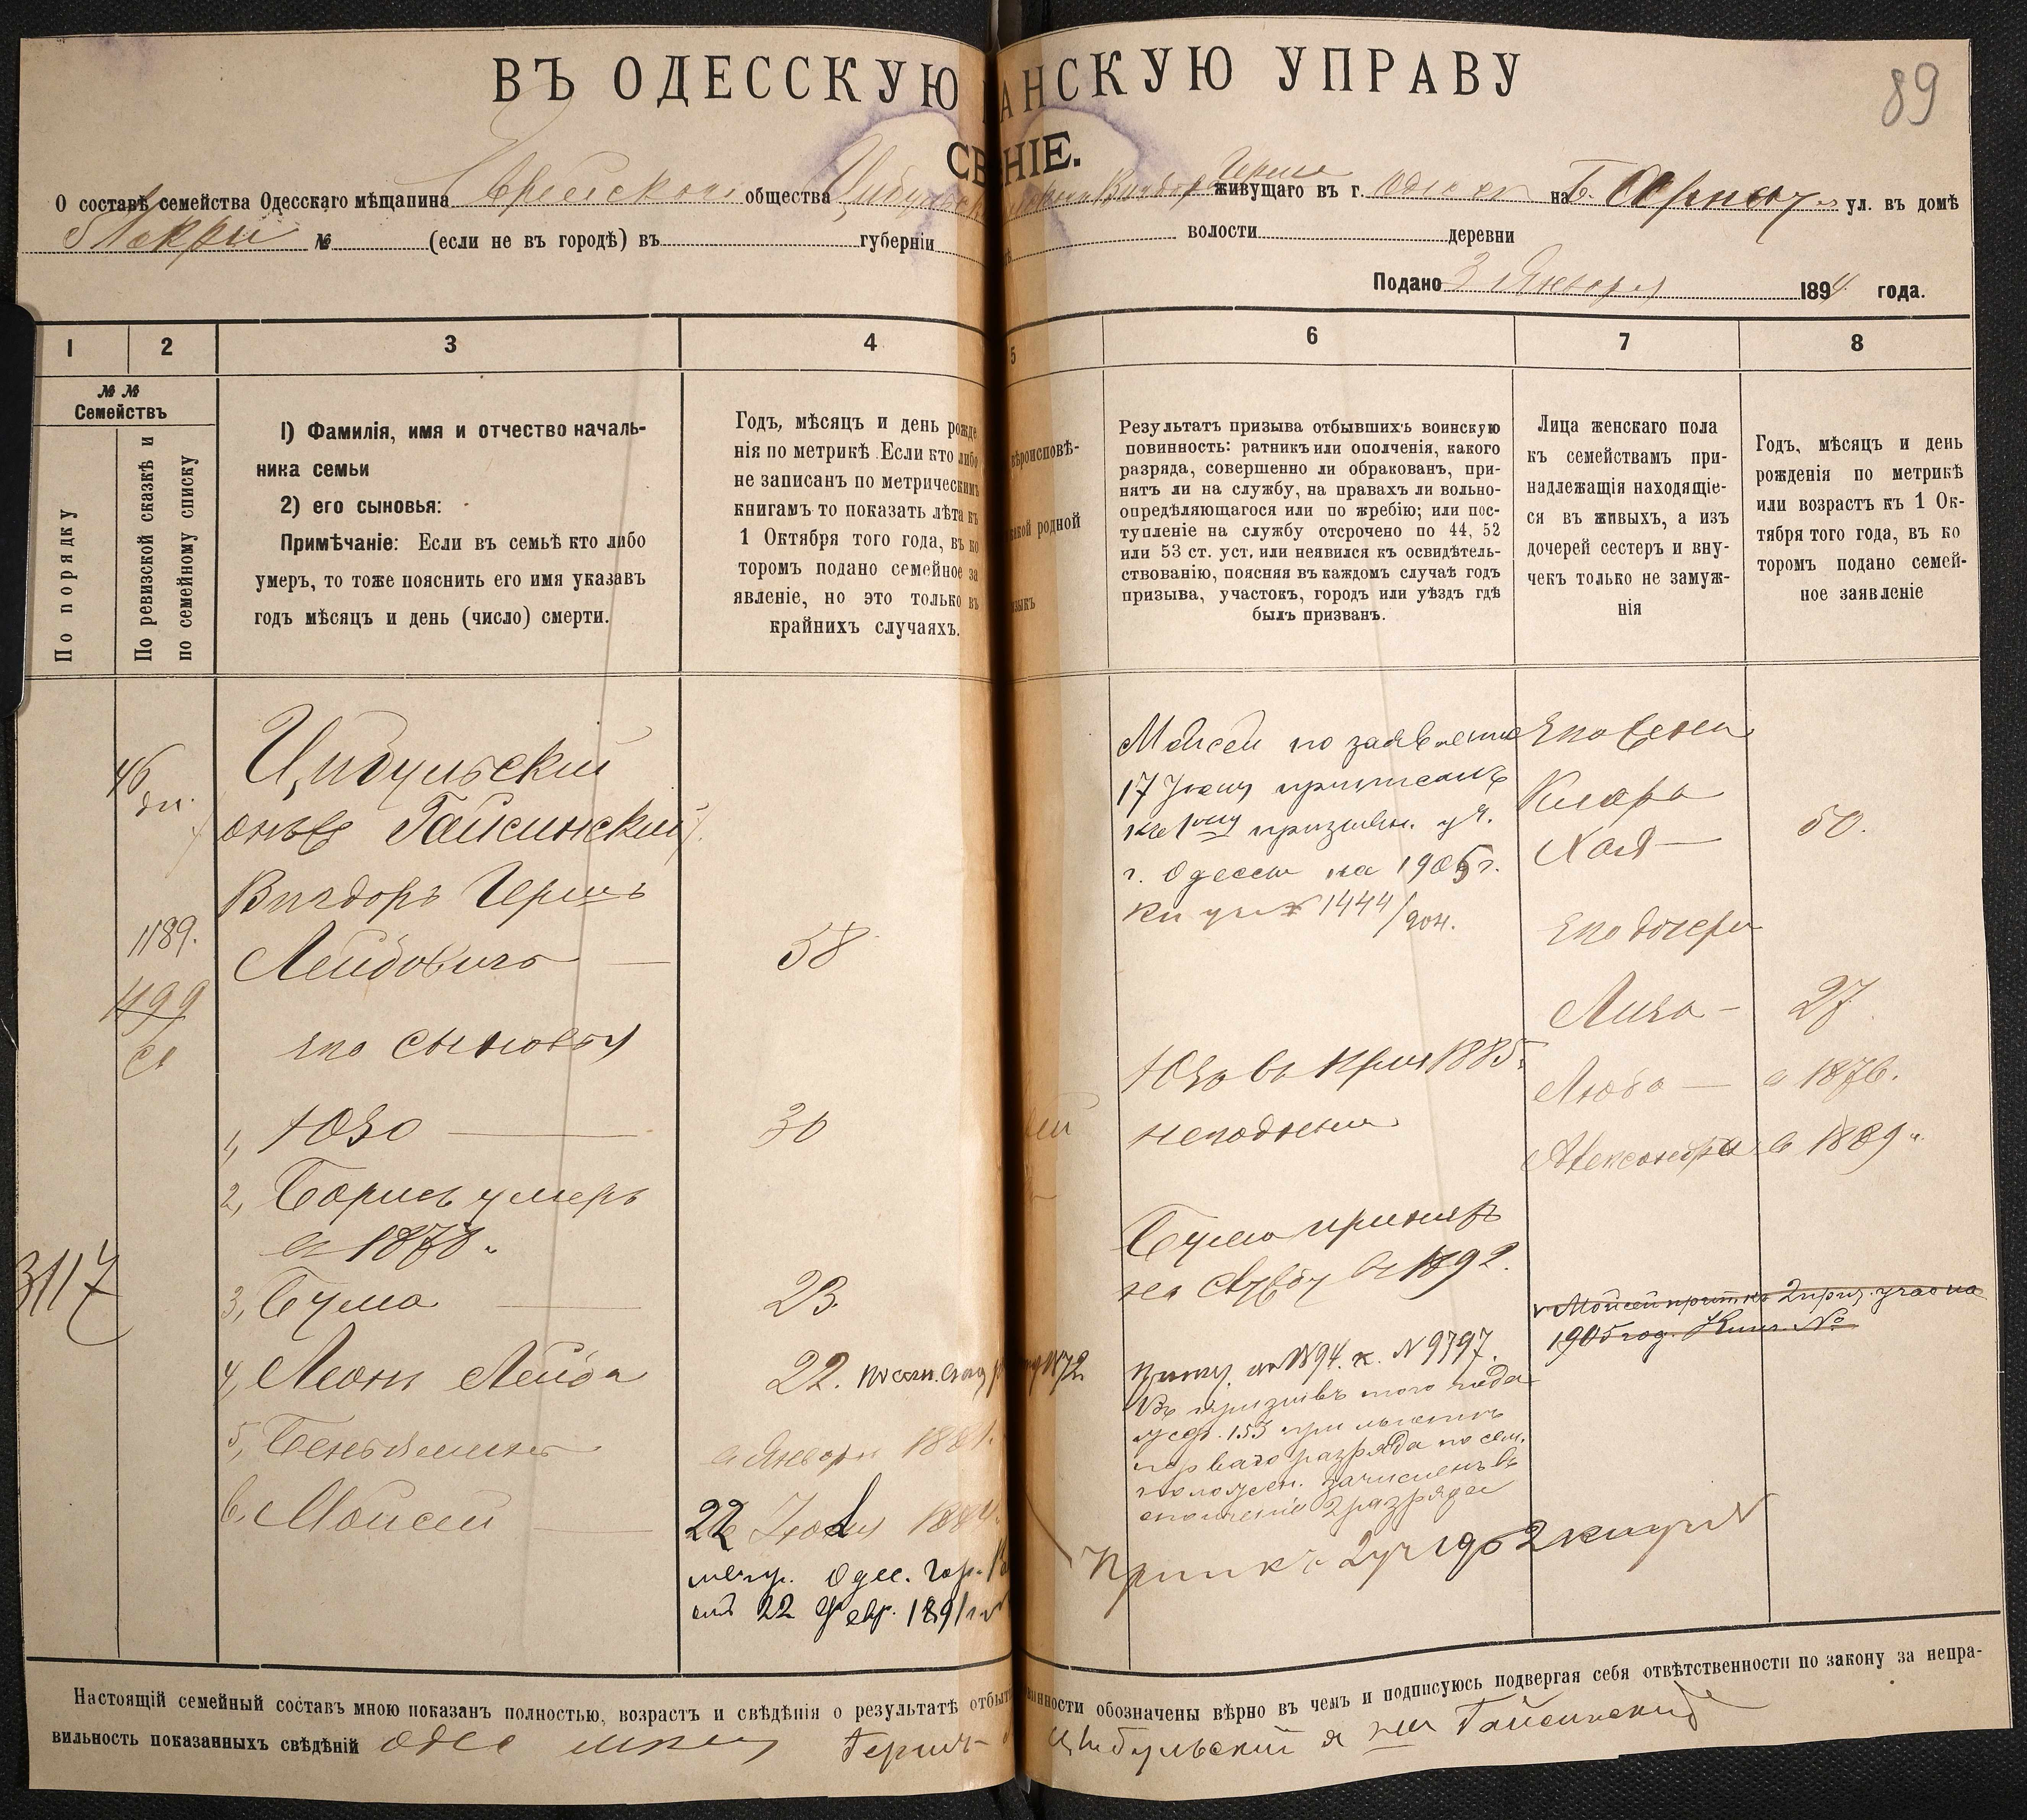 89
ВЪ ОДЕССКУЮ АНСКУЮ УПРАВУ
СВ НІЕ.
О составѣ семейства Одесскаго мѣщанина Еврейскаго общества живущаго въ г. Одессѣ на Б. ул. въ домѣ
№ (если не въ городѣ) въ губерніи волости деревни
Подано 3 Января 1894 года.
1 2 3 4 5 6 7 8
№ №
Семействъ
По порядку
По ревизской сказкѣ и
по семейному списку
1) Фамилія, имя и отчество началь-
ника семьи
2) его сыновья:
Примѣчаніе: Если въ семьѣ кто либо
умеръ, то тоже пояснить его имя указавъ
годъ мѣсяцъ и день (число) смерти.
Годъ, мѣсяцъ и день рожде
нія по метрикѣ. Если кто либо
не записанъ по метрическимъ
книгамъ то показать лѣта къ
1 Октября того года, въ ко
торомъ подано семейное за
явленіе, но это только въ
крайнихъ случаяхъ.
вѣроисповѣ-
какой родной
языкъ
Результатъ призыва отбывшихъ воинскую
повинность: ратникъ или ополченія, какого
разряда, совершенно ли обракованъ, при-
нятъ ли на службу, на правахъ ли вольно-
опредѣляющагося или по жребію; или пос-
тупленіе на службу отсрочено по 44, 52
или 53 ст. уст. или неявился къ освидѣтель-
ствованію, поясняя въ каждомъ случаѣ годъ
призыва, участокъ, городъ или уѣздъ гдѣ
былъ призванъ.
Лица женскаго пола
къ семействамъ при-
надлежащія находящіе-
ся въ живыхъ, а изъ
дочерей сестеръ и вну-
чекъ только не замуж-
нія
Годъ, мѣсяцъ и день
рожденія по метрикѣ
или возрастъ къ 1 Ок-
тября того года, въ ко
торомъ подано семей-
ное заявленіе
46
Цибульскій
онъ же Гайсинскій
Вигдоръ Гершъ
1189.
Лейбовичъ — 58
1199
его сыновья
1, Юзо — 30
2, Борисъ умеръ
в 1878 г.
3117
3, Бума — 23.
4, Леонъ Лейба 22.
5, Беньяминъ в Январѣ 1881.
6. Мойсей — 22 Іюля 1884.
метр. Одес. гор.
22 Февр. 1891
Мойсей по заявленію
17 Іюня приписанъ
къ 1му призывн. уч.
г. Одессы на 1905 г.
1444/904.
Юзо въ 1885 г.
неподлежи
Бума принятъ
на службу въ 1892.
1894. к. N 9797.
Въ призывъ того года
153 при льготѣ
перваго разряда по сем.
полож. зачисленъ въ
ополченіе 2 разряда
Его жена
Клара
Хая — 50.
Его дочери
Лиза — 27
Люба — в 1876.
Александра в 1889 г.
1905 год. Книг. №
Настоящій семейный составъ мною показанъ полностью, возрастъ и свѣдѣнія о результатѣ отбыт инности обозначены вѣрно въ чемъ и подписуюсь подвергая себя отвѣтственности по закону за непра-
вильность показанныхъ свѣдѣній Гершъ Цибульскій Гайсинскій